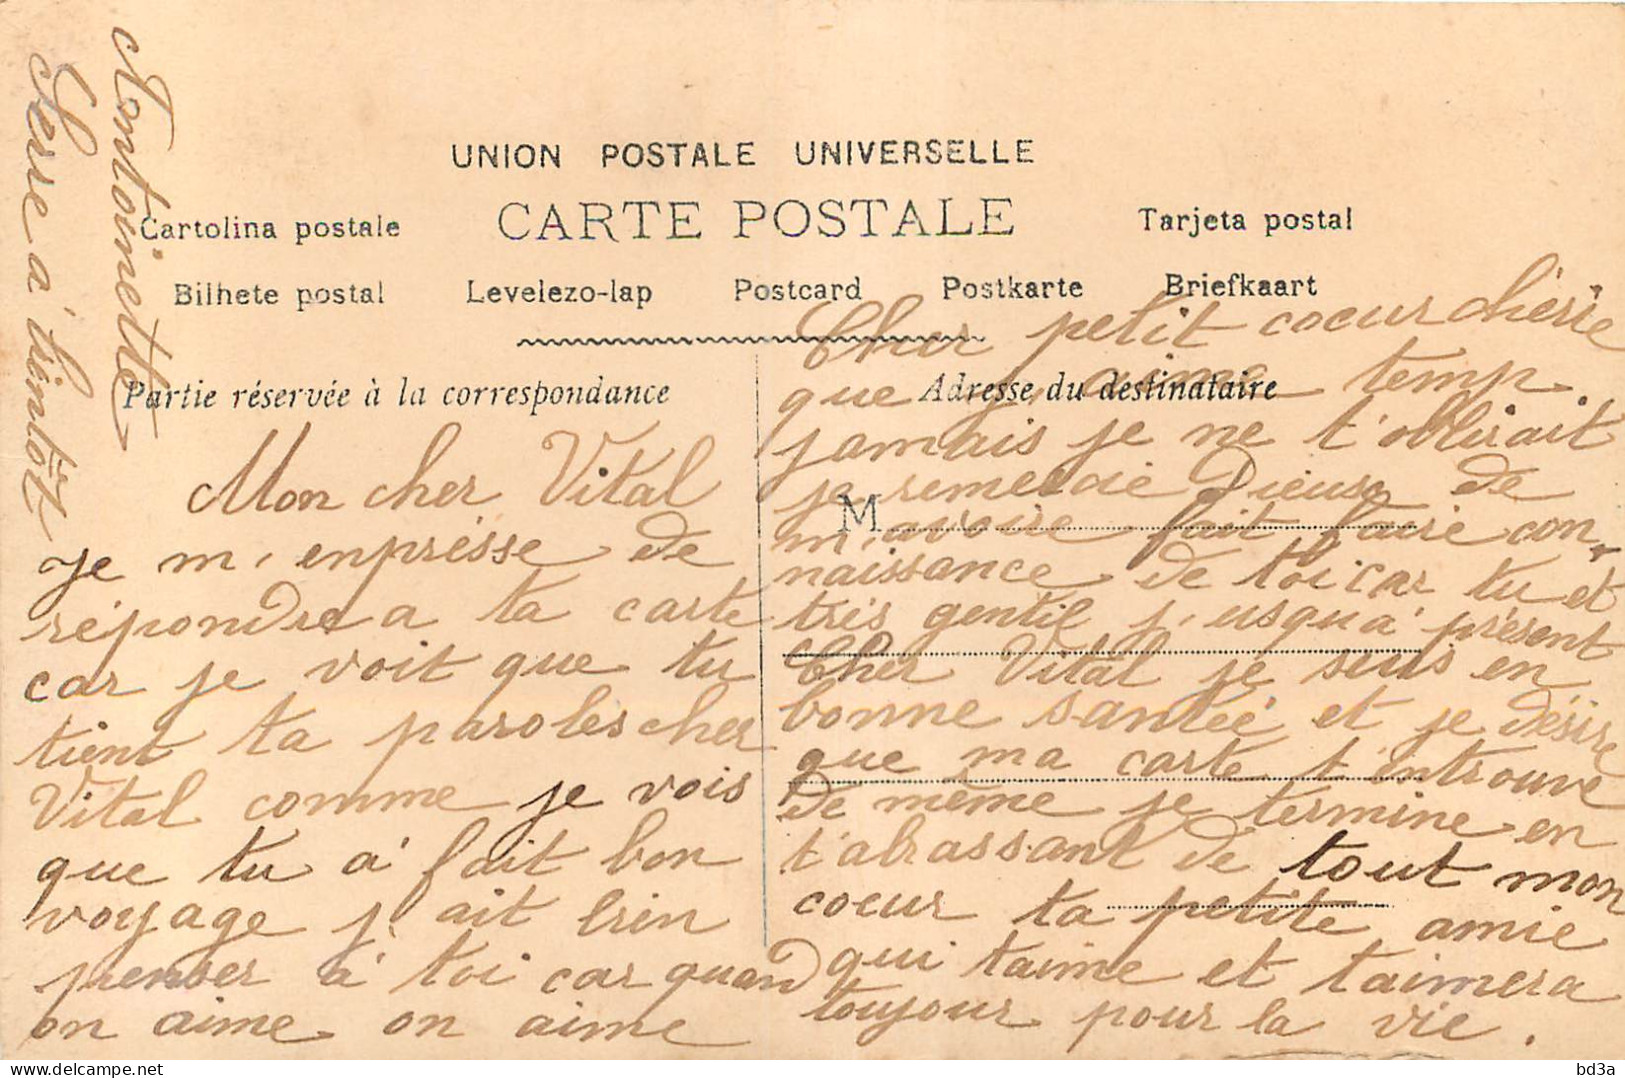 UNION POSTALE UNIVERSELLE
CARTE POSTALE
Cartolina postale
Tarjeta postal
Bilhete postal
Levelezo-lap
Postcard
Postkarte
Briefkaart
Partie réservée à la correspondance
Adresse du destinataire
M
Mon cher Vital
je m, enprésse de
répondre a ta carte
car je voit que tu
tient ta paroles cher
Vital comme je vois
que tu a' fait bon
voyage j, ait brin
penser a' toi car quand
on aime on aime
Cher petit coeur chérie
que j, aime temp.
jamais je ne t'oblirait
je remercie Dieuse de
m'avoire fait faire con-
naissance de toi car tu et
très gentil j, usqu'a' présent
Cher Vital je suis en
bonne santée et je désire
que ma carte t'entrouve
de même je termine en
t'abrassant de tout mon
coeur ta petite amie
qui taime et taimera
toujour pour la vie.
Antoinette
Serre a' bientôt
bd3a